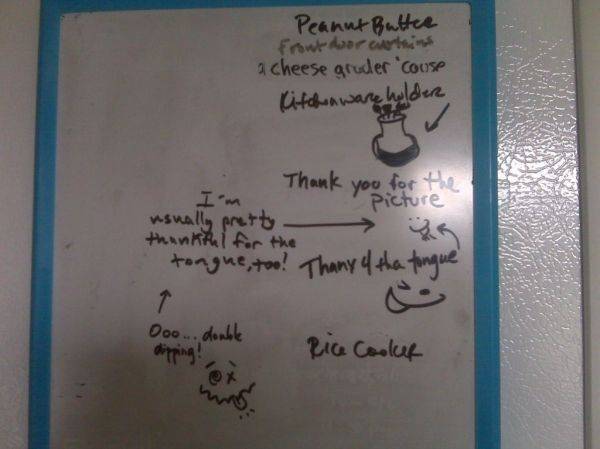 Peanut Butter
Front door curtains
a cheese grader 'cause
Kitchenware holder
Thank you for the
Picture
I'm
usually pretty
thankful for the
tongue, too!
Thanx 4 tha tongue
Ooo... double
dipping!
Rice Cooker